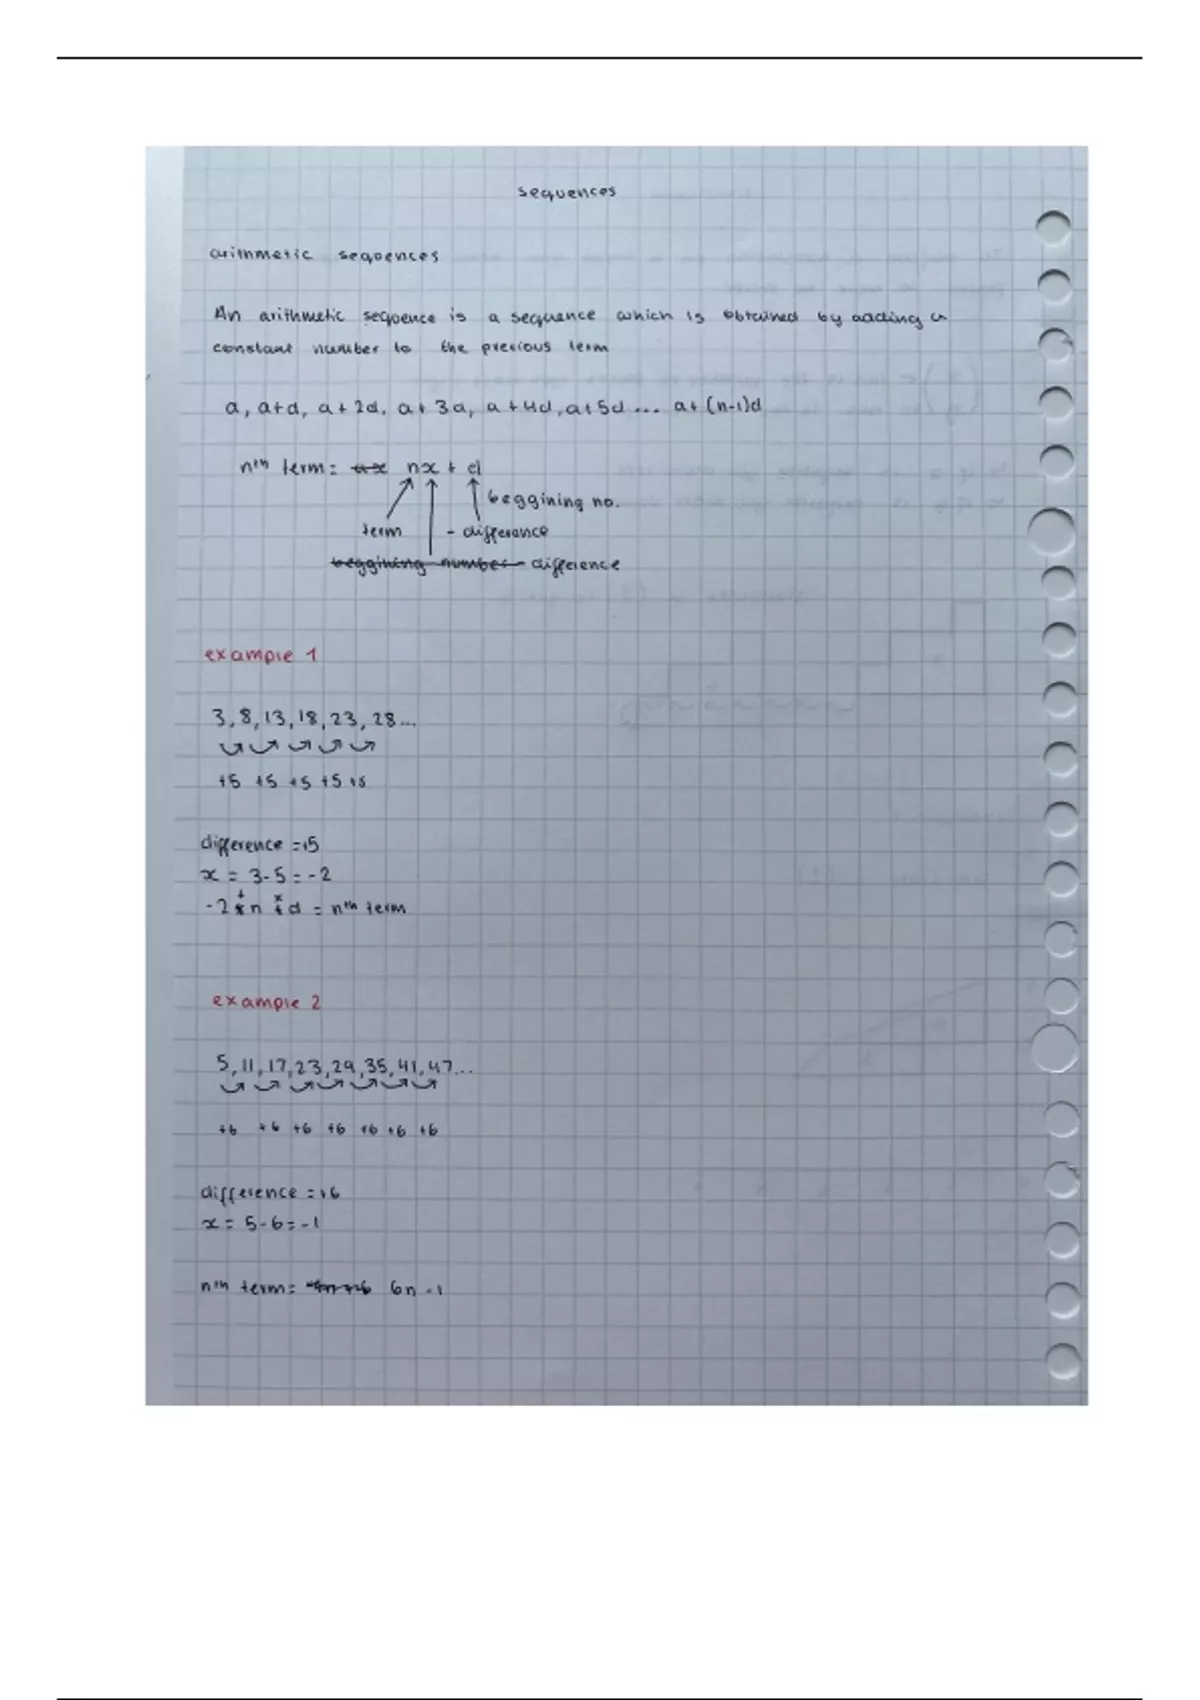 sequences
arithmetic sequences
An arithmetic sequence is a sequence which is obtained by adding a
constant number to the previous term
a, a+d, a+2d, a+3d, a+4d, a+5d ... a+(n-1)d
nth term = nx + d
beggining no.
term - difference
beggining number difference
example 1
3, 8, 13, 18, 23, 28...
+5 +5 +5 +5 +5
difference = +5
x = 3-5 = -2
-2 + n x d = nth term
example 2
5, 11, 17, 23, 29, 35, 41, 47...
+6 +6 +6 +6 +6 +6 +6
difference = +6
x = 5-6 = -1
nth term = 6n -1